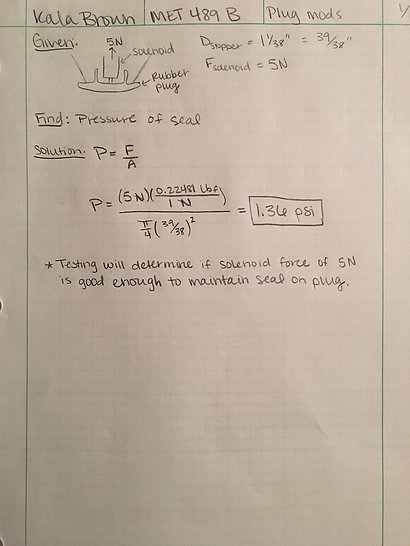 Kala Brown MET 489 B Plug mods 1/
Given: 5N solenoid Rubber plug
D stopper = 1 1/38" = 39/38"
F solenoid = 5N
Find: Pressure of seal
Solution: P = F/A
P = (5N)(0.22481 lbf / 1 N) / π/4 (39/38)² = 1.36 psi
* Testing will determine if solenoid force of 5N
is good enough to maintain seal on plug.